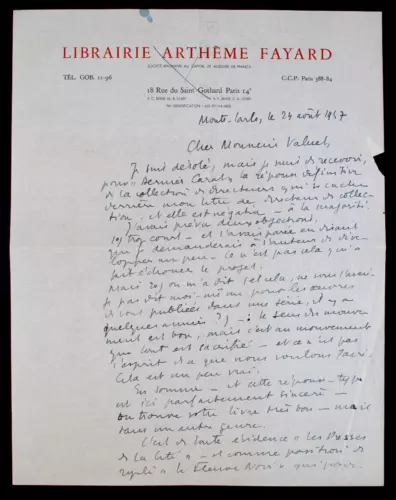 LIBRAIRIE ARTHÈME FAYARD
SOCIÉTÉ ANONYME AU CAPITAL DE MILLIONS DE FRANCS
TÉL. GOB. 11-96
C.C.P. Paris 388-84
18 Rue du Saint Gothard Paris 14e
Monte-Carlo, le 24 août 1957
Cher Monsieur Valuet,
Je suis désolé, mais je viens de recevoir,
pour "Dernier Carat" la réponse définitive
de la collection de directeurs qui se cache
derrière mon titre de directeur de collec-
tion, et elle est négative - à la majorité.
J'avais prévu deux objections.
1) trop court - et je l'avais parée en disant
que je demanderais à l'auteur de déve-
lopper un peu. Ce n'est pas cela qui a
fait échouer le projet.
Mais 2) on m'a dit
pas dit moi-même pour les œuvres
publiées dans une série, il y a
quelques années : le sens du mouve-
ment est bon, mais c'est au mouvement
que tout est sacrifié - et ce n'est pas
l'esprit de ce que nous voulons faire.
Cela est un peu vrai.
En somme - et cette réponse-type
est ici parfaitement sincère -
on trouve votre livre très bon - mais
dans un autre genre.
C'est de toute évidence "Les Presses
de la Cité" - et comme position de
repli "le Fleuve Noir" qui